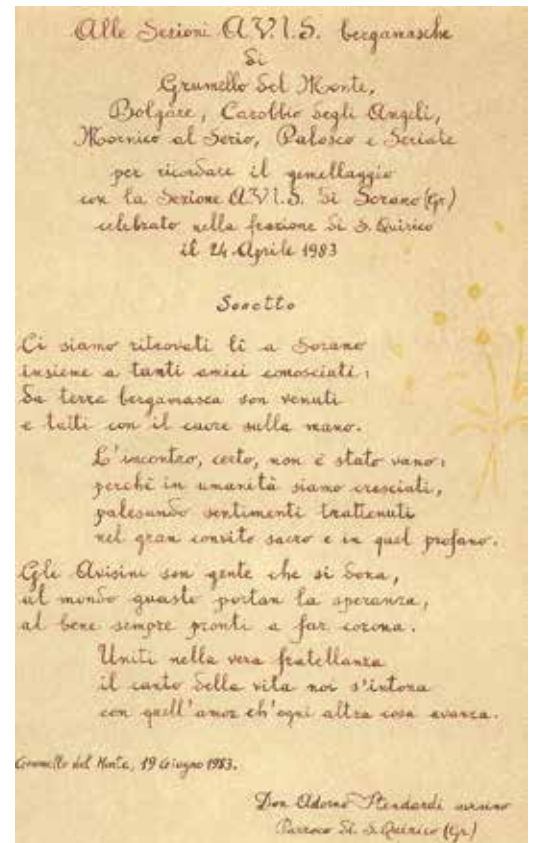 Alle Sezioni A.V.I.S. bergamasche
di
Grumello del Monte,
Bolgare, Carobbio degli Angeli,
Mornico al Serio, Palosco e Seriate
per ricordare il gemellaggio
con la Sezione A.V.I.S. di Sorano (Gr)
celebrato nella frazione di S. Quirico
il 24 Aprile 1983
Sonetto
Ci siamo ritrovati lì a Sorano
insieme a tanti amici conosciuti;
da terra bergamasca son venuti
e tutti con il cuore sulla mano.
L'incontro, certo, non è stato vano;
perché in umanità siamo cresciuti,
palesando sentimenti trattenuti
nel gran convito sacro e in quel profano.
Gli Avisini son gente che si dona,
al mondo guasto portan la speranza,
al bene sempre pronti a far corona.
Uniti nella vera fratellanza
il canto della vita noi s'intona
con quell'amor ch'ogni altra cosa avanza.
Grumello del Monte, 19 Giugno 1983.
Don Adorno Stendardi
Parroco di S. Quirico (Gr)